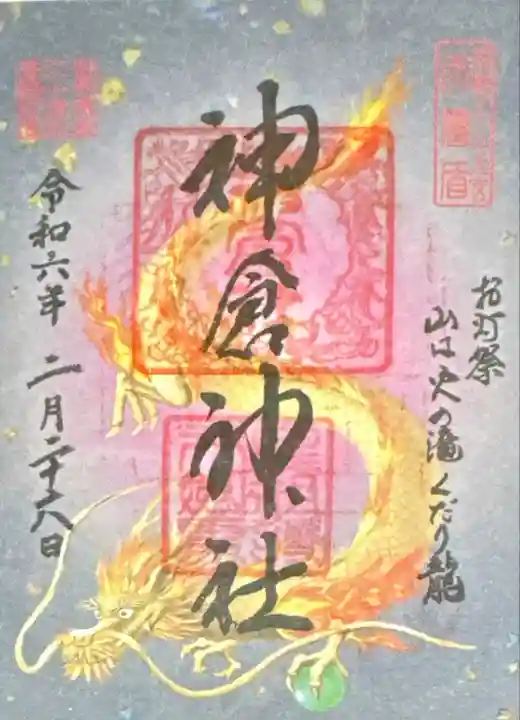 お灯祭
山は火の滝くだり龍
神倉神社
令和六年 二月二十六日